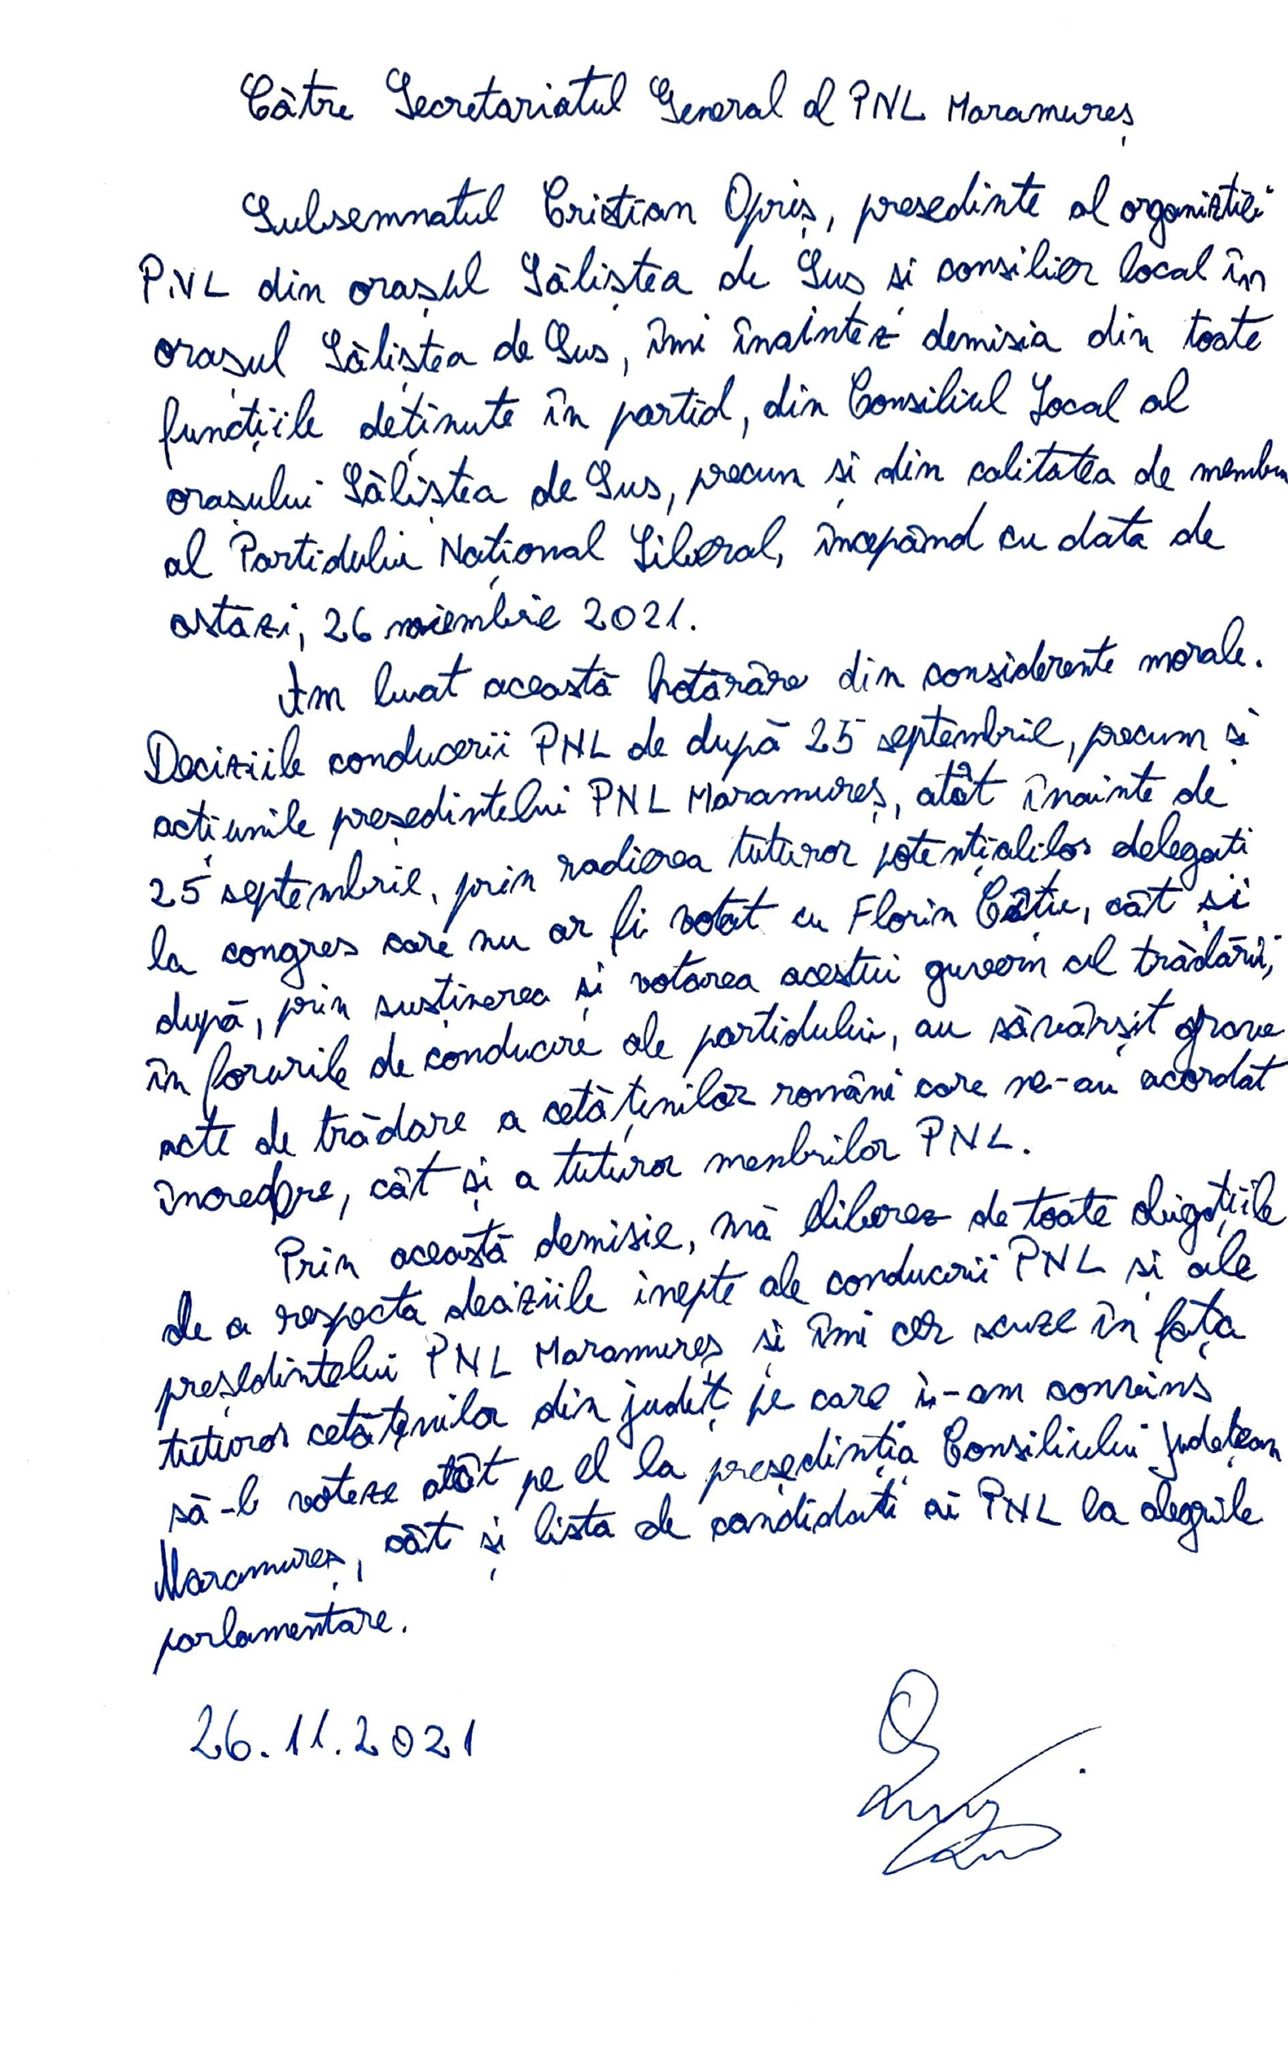 Către Secretariatul General al PNL Maramureș
Subsemnatul Cristian Opriș, președinte al organiztiei
PNL din orașul Săliștea de Sus si consilier local în
orașul Săliștea de Sus, îmi înaintez demisia din toate
funcțiile deținute în partid, din Consiliul Local al
orașului Săliștea de Sus, precum și din calitatea de membru
al Partidului Național Liberal, începând cu data de
astăzi, 26 noiembrie 2021.
Am luat această hotărâre din considerente morale.
Deciziile conducerii PNL de după 25 septembrie, precum și
acțiunile președintelui PNL Maramureș, atât înainte de
25 septembrie, prin radierea tuturor potențialilor delegati
la congres care nu ar fi votat cu Florin Cîțu, cât și
după, prin susținerea și votarea acestui guvern al trădării,
în forurile de conducere ale partidului, au săvârșit grave
acte de trădare a cetățenilor români care ne-au acordat
încredere, cât și a tuturor membrilor PNL.
Prin această demisie, mă eliberez de toate obligațiile
de a respecta deciziile inepte ale conducerii PNL și ale
președintelui PNL Maramureș și îmi cer scuze în fața
tuturor cetățenilor din județ pe care i-am convins
să-l voteze atât pe el la președinția Consiliului Județean
Maramureș, cât și lista de candidați ai PNL la alegrile
parlamentare.
26.11.2021